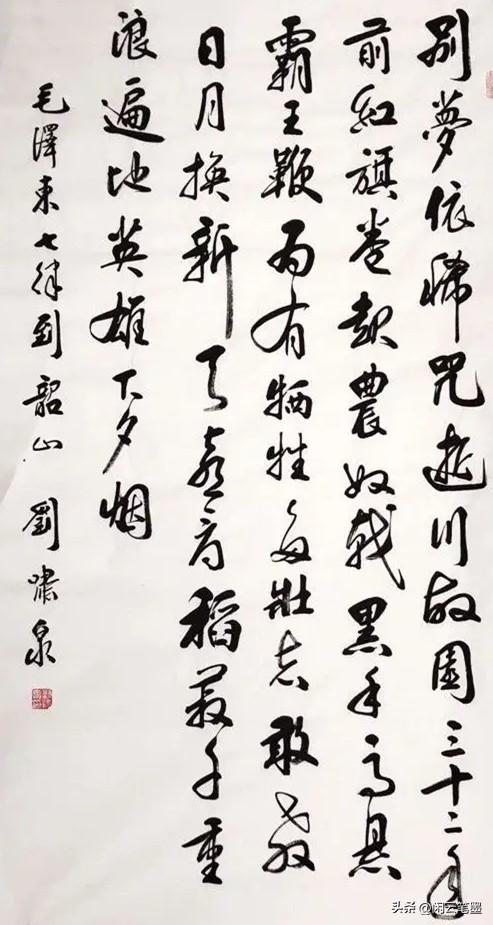 别夢依稀咒逝川故園三十二年
前紅旗卷起農奴戟黑手高悬
霸王鞭为有牺牲多壯志敢教
日月換新天喜看稻菽千重
浪遍地英雄下夕烟
毛澤東七律到韶山 劉嘯泉
头条 @闲云笔墨